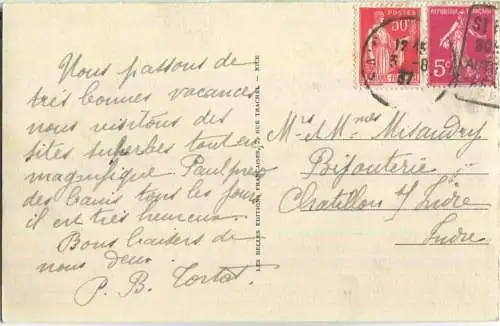 Nous passons de
très bonnes vacances
nous visitons des
sites superbes tout est
magnifique. Paul prend
des bains tous les jours
il est très heureux
Bons baisers de
nous deux.
P. B. Tortat
LES BELLES EDITIONS FRANÇAISES, RUE TRACHEL - NICE
POSTES
50c
REPUBLIQUE FRANÇAISE
5c
17 45
3 -8
37
Mrs et Mmes Misandry
Bijouterie
Chatillon s/ Indre
Indre